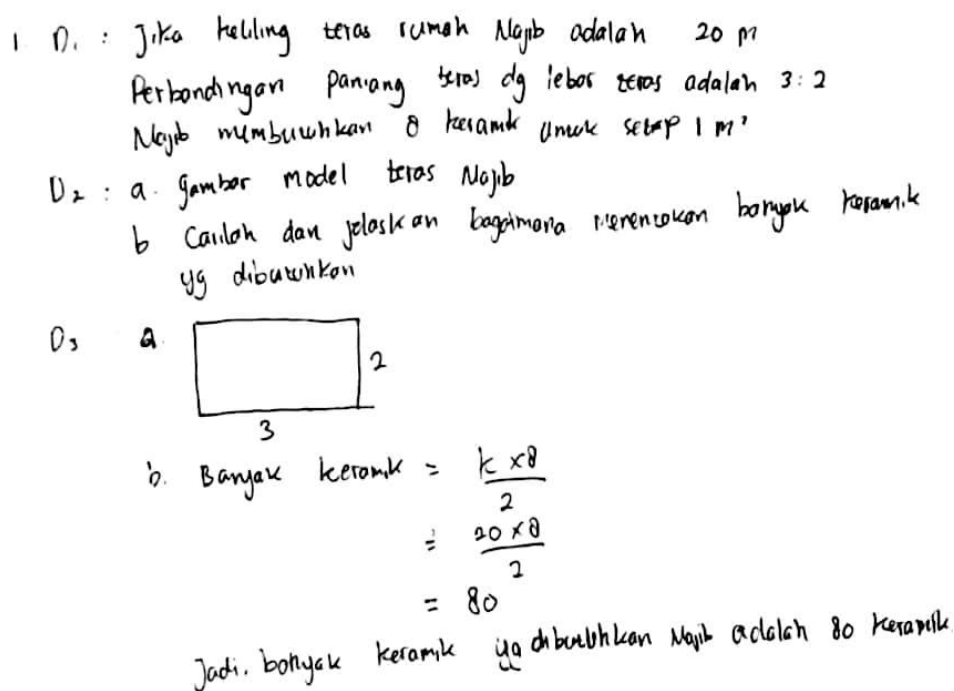 1 D1 : Jika keliling teras rumah Najib adalah 20 m
Perbandingan panjang teras dg lebar teras adalah 3 : 2
Najib membutuhkan 8 keramik untuk setiap 1 m²
D2 : a. gambar model teras Najib
b Carilah dan jelaskan bagaimana menentukan banyak keramik
yg dibutuhkan
D3 a.
2
3
b. Banyak keramik = k × 8
2
= 20 × 8
2
= 80
Jadi, banyak keramik yg dibutuhkan Najib adalah 80 keramik